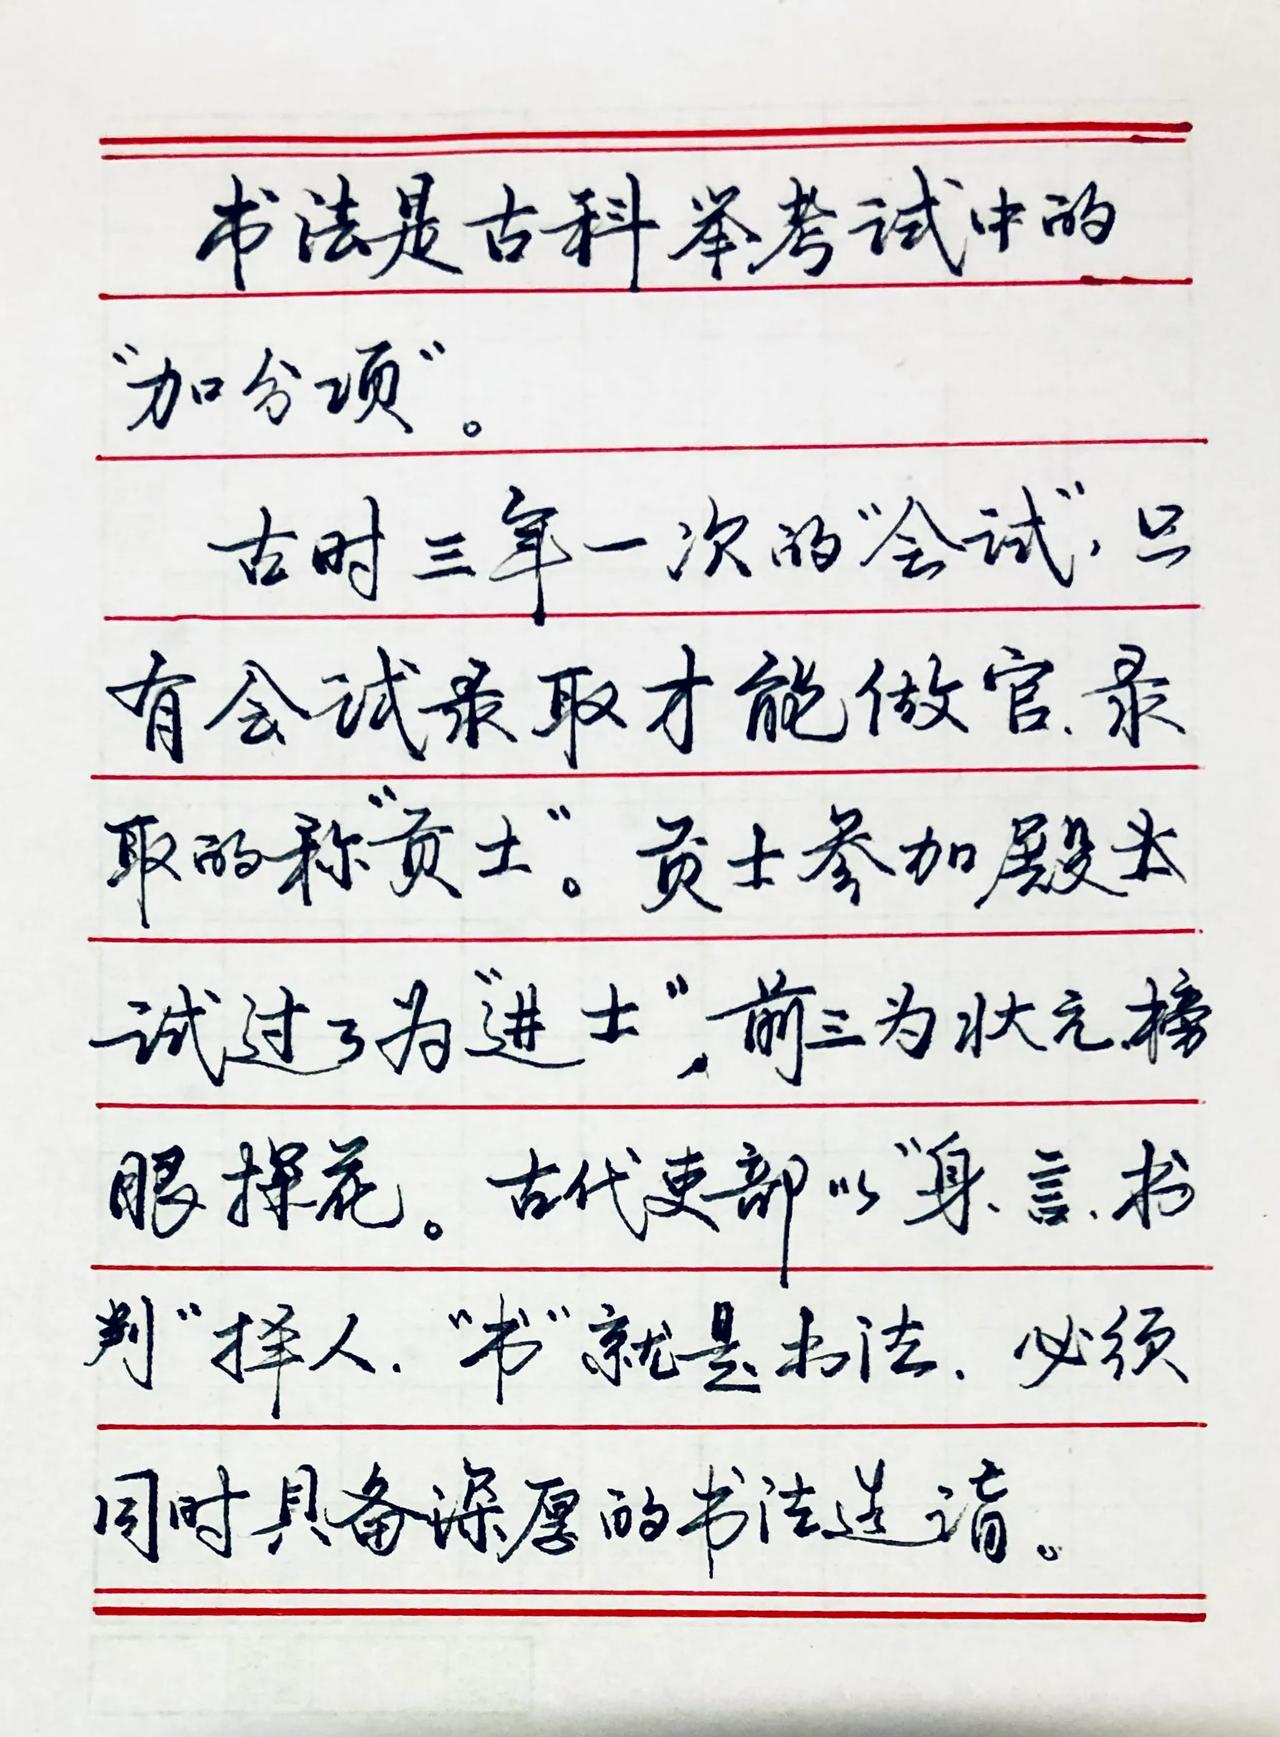 书法是古科举考试中的
“加分项”。
古时三年一次的“会试”,只
有会试录取才能做官、录
取的称“贡士”。贡士参加殿
试过了为“进士”,前三为状元、榜
眼探花。古代吏部以“身、言、书
判”择人、“书”就是书法、必须
同时具备深厚的书法造诣。